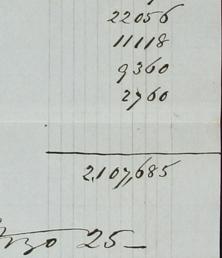 22056
11118
9360
2760
2,107,685
25—